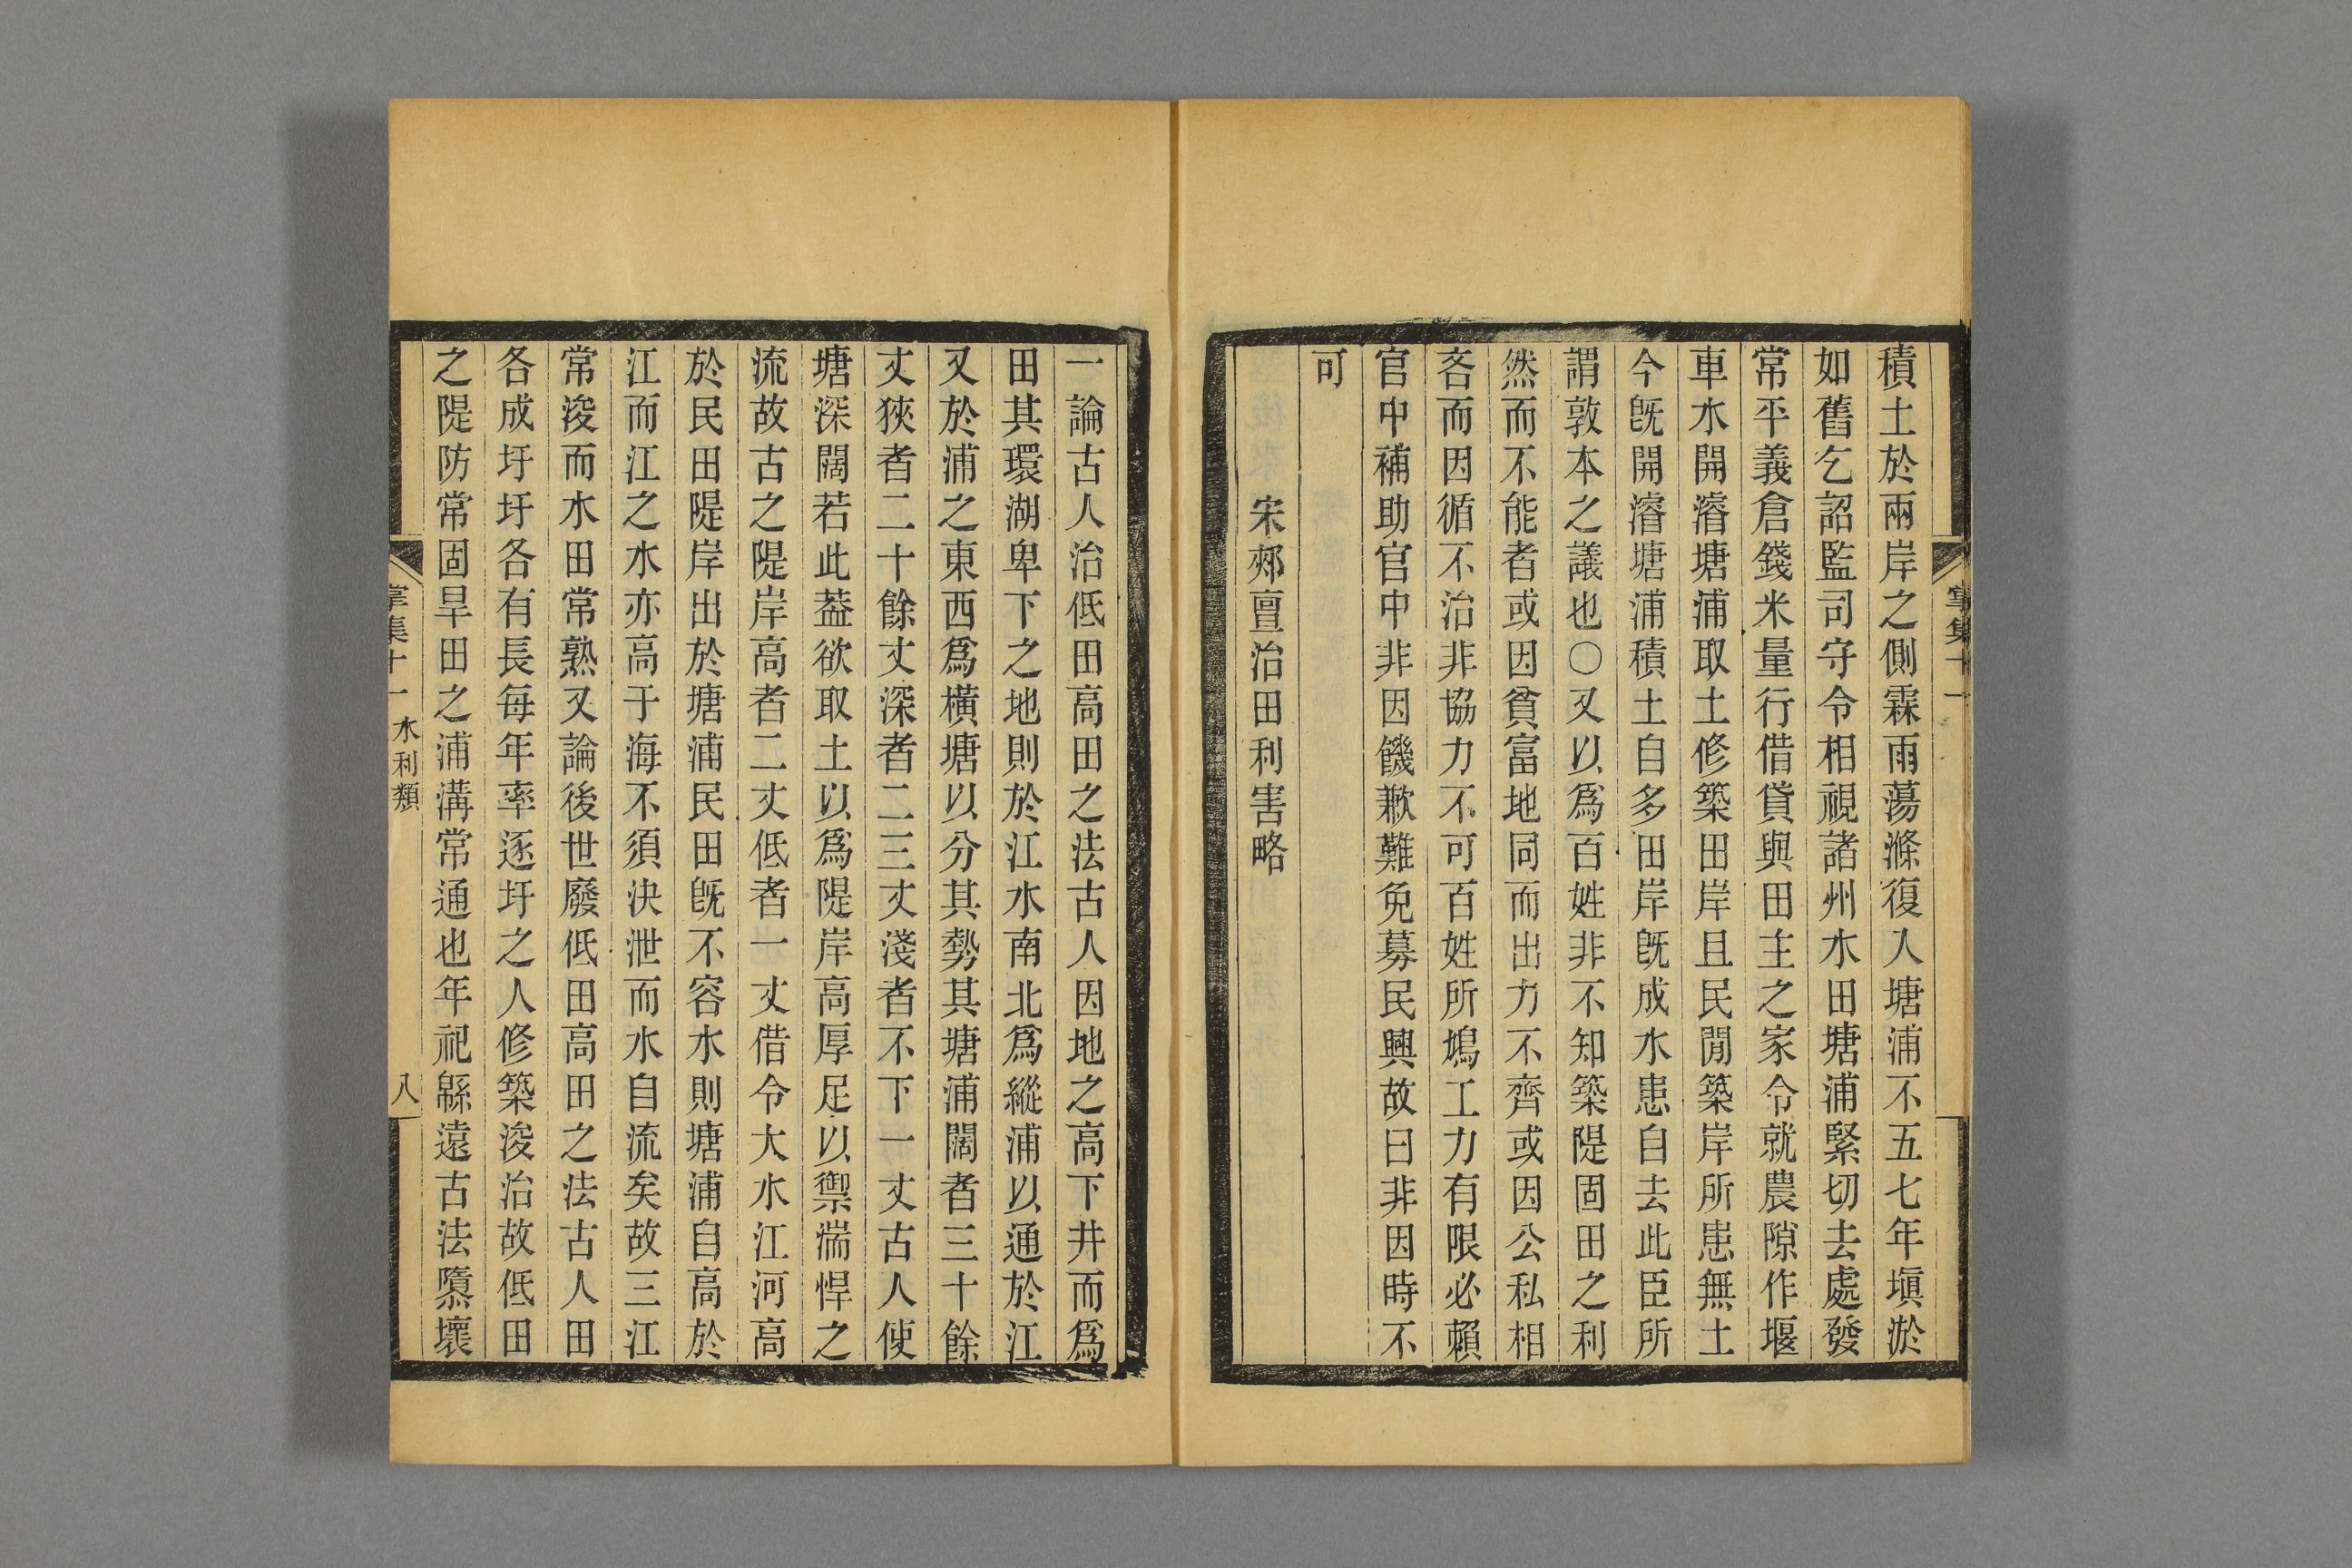 積土於兩岸之側霖雨蕩滌復入塘浦不五七年塡淤
如舊乞詔監司守令相視諸州水田塘浦緊切去處發
常平義倉錢米量行借貸與田主之家令就農隙作堰
車水開濬塘浦取土修築田岸且民閒築岸所患無土
今旣開濬塘浦積土自多田岸旣成水患自去此臣所
謂敦本之議也〇又以爲百姓非不知築隄固田之利
然而不能者或因貧富地同而出力不齊或因公私相
吝而因循不治非協力不可百姓所塢工力有限必賴
官中補助官中非因饑歉難免募民興故曰非因時不
可
宋郟亶治田利害略
掌集十一
一論古人治低田高田之法古人因地之高下井而爲
田其環湖卑下之地則於江水南北爲縱浦以通於江
又於浦之東西爲橫塘以分其勢其塘浦闊者三十餘
丈狹者二十餘丈深者二三丈淺者不下一丈古人使
塘深闊若此葢欲取土以爲隄岸高厚足以禦湍悍之
流故古之隄岸高者二丈低者一丈借令大水江河高
於民田隄岸出於塘浦民田旣不容水則塘浦自高於
江而江之水亦高于海不須決泄而水自流矣故三江
常浚而水田常熟又論後世廢低田高田之法古人田
各成圩圩各有長每年率逐圩之人修築浚治故低田
之隄防常固旱田之浦溝常通也年祀緜遠古法隳壞
掌集十一 水利類 八